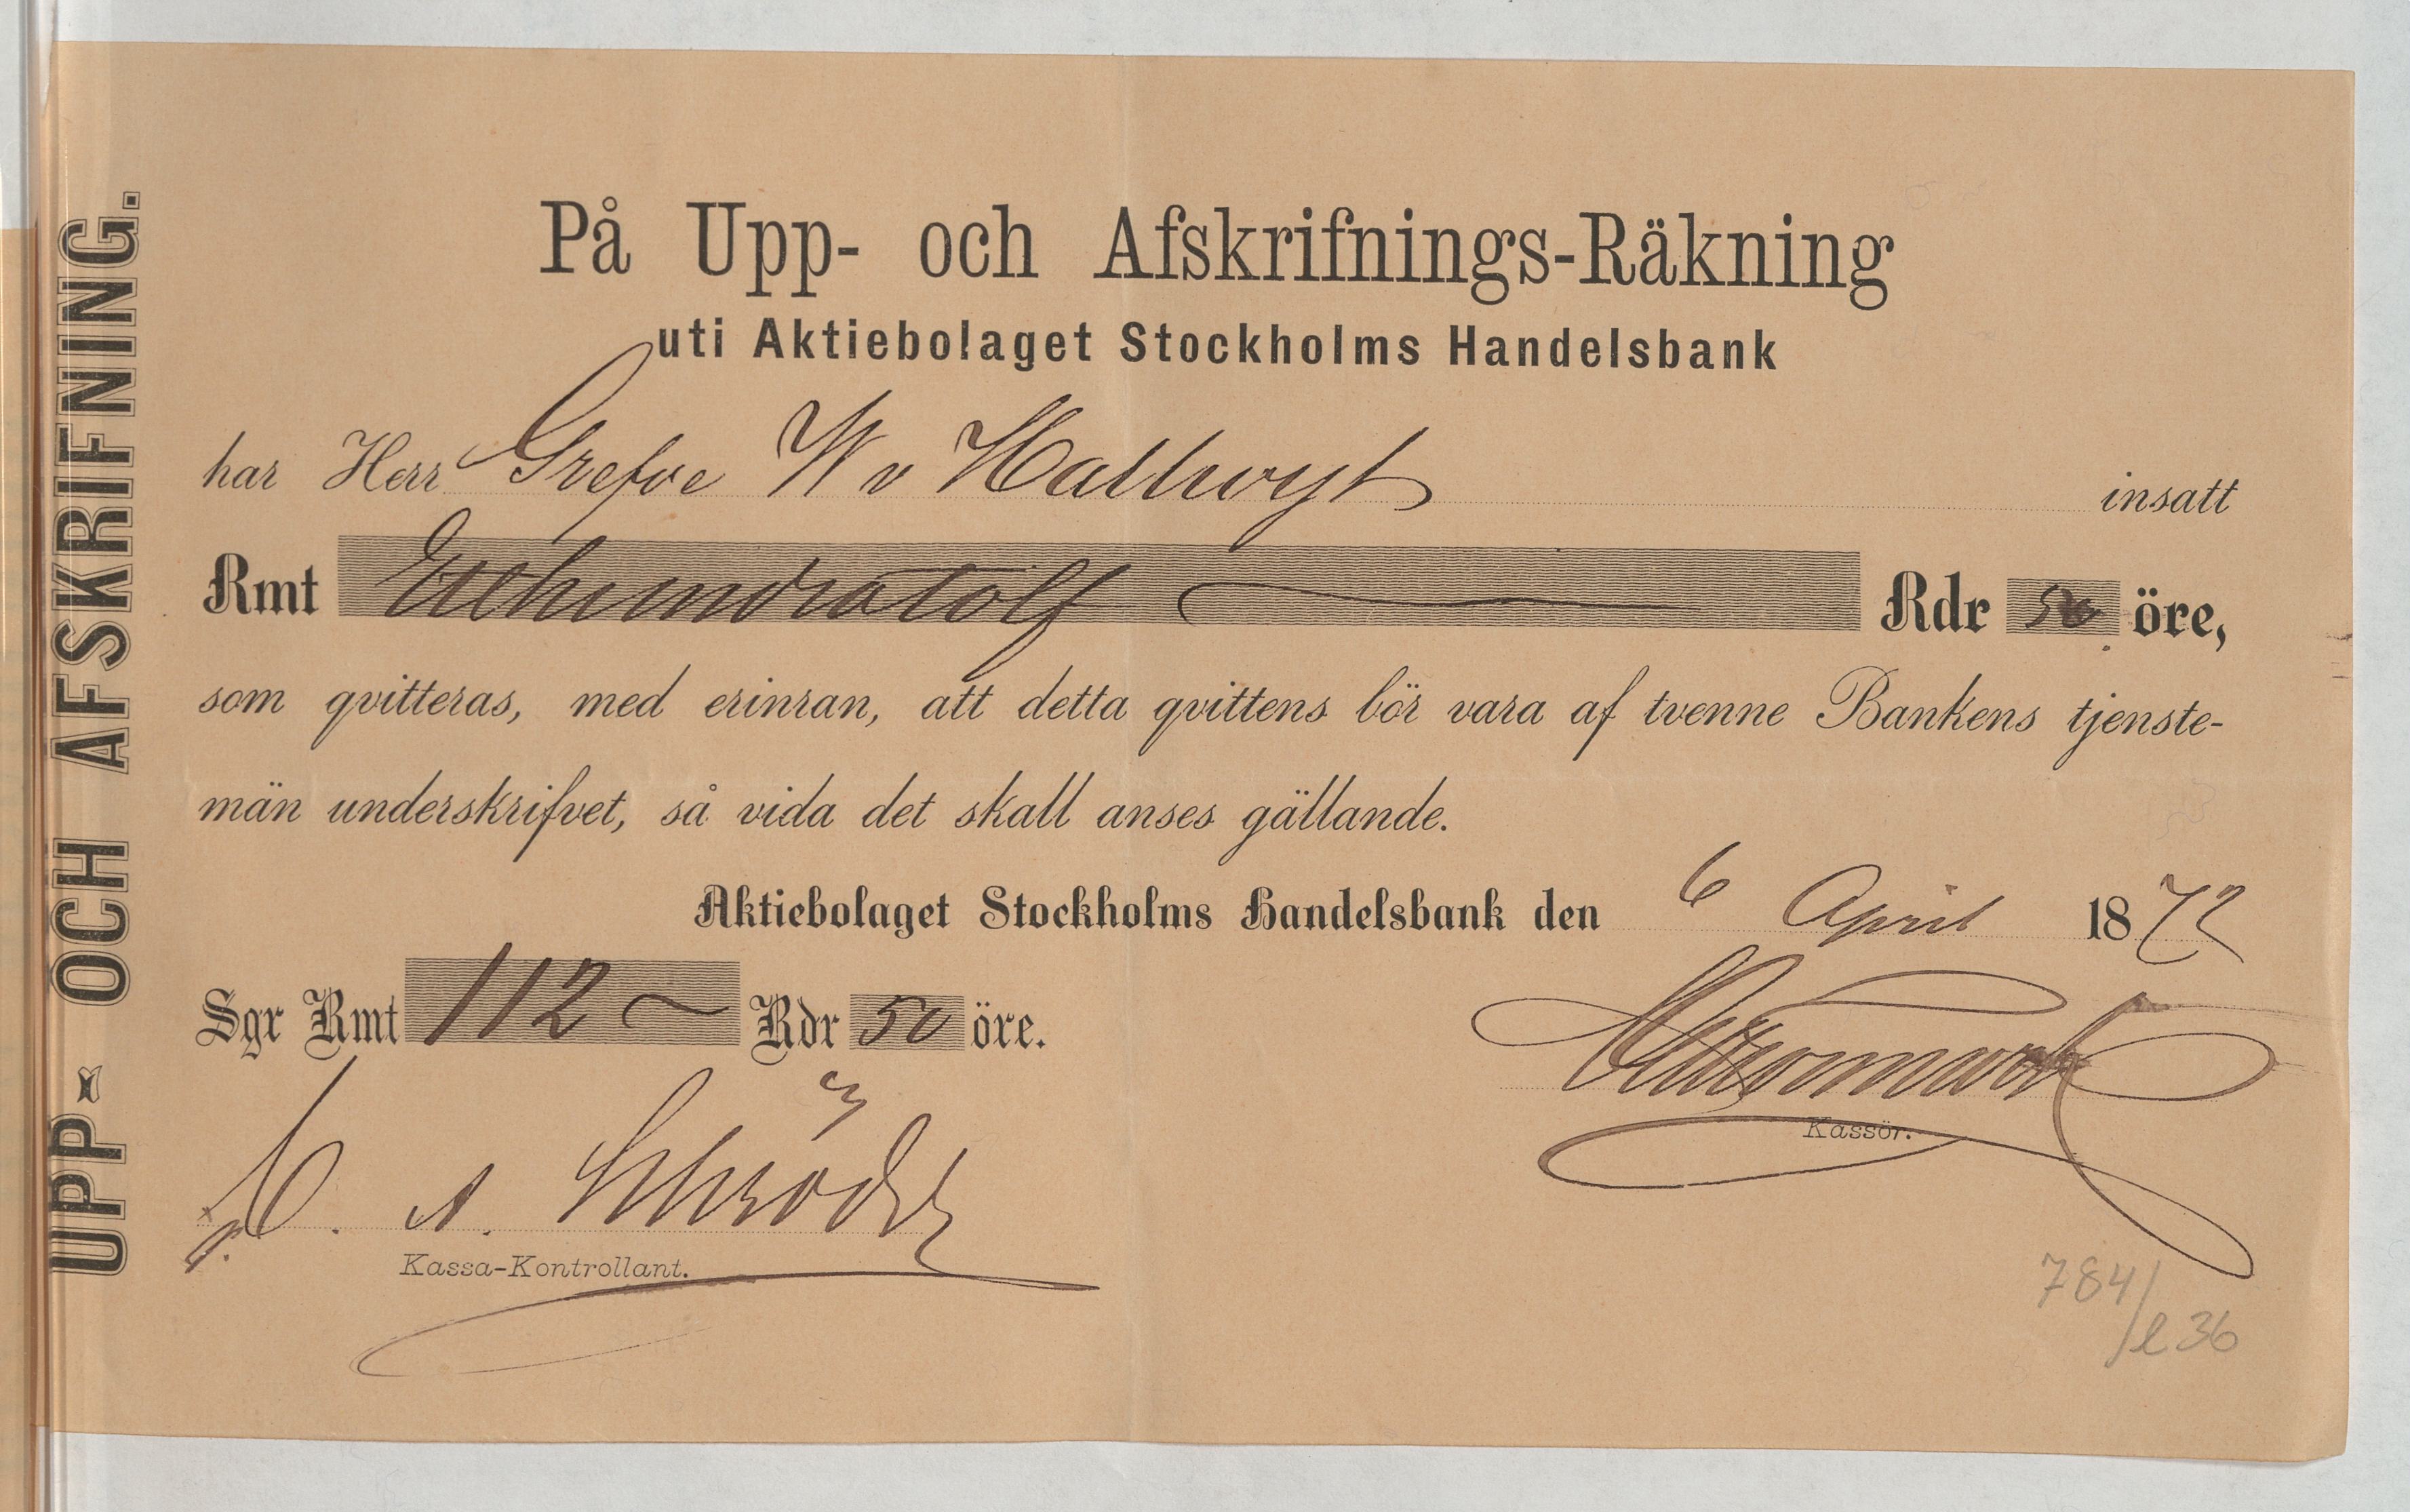 UPP- OCH AFSKRIFNING.
På Upp- och Afskrifnings-Räkning
uti Aktiebolaget Stockholms Handelsbank
har Herr Grefve W v Hallwyl insatt
Rmt Etthundratolf Rdr 50 öre,
som qvitteras, med erinran, att detta qvittens bör vara af tvenne Bankens tjenste-
män underskrifvet, så vida det skall anses gällande.
Aktiebolaget Stockholms Handelsbank den 6 April 1872
Sgr Rmt 112 Rdr 50 öre.
Kassör.
A. Schröder
Kassa-Kontrollant.
784/
l 36